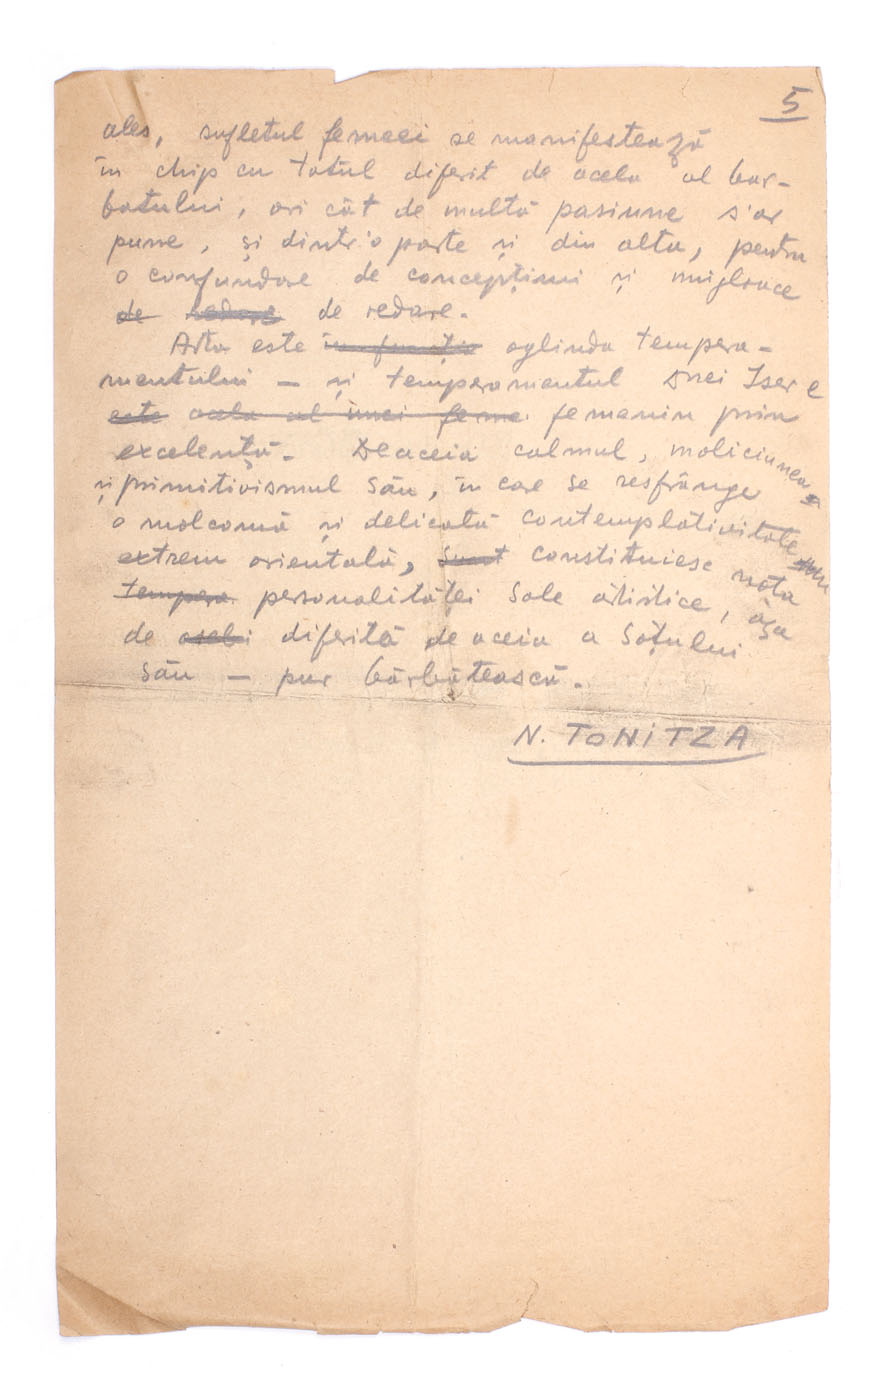 5
ales, sufletul femeei se manifestează
în chip cu totul diferit de acela al băr-
batului, ori cât de multă pasiune s'ar
pune, și dintr'o parte și din alta, pentru
o confundare de concepțiuni și mijloace
de redare de redare.
Arta este oglinda tempera-
mentului — și temperamentul Dnei Iser e
este acela al unei feme femenin prin
excelență. Deaceia calmul, moliciunea
și primitivismul său, în care se resfrânge
o molcomă și delicată contemplativitate
extrem orientală, sunt constituiesc nota
tempera personalităței sale artistice, așa
de diferită de aceia a soțului
său — pur bărbătească.
N. TONITZA